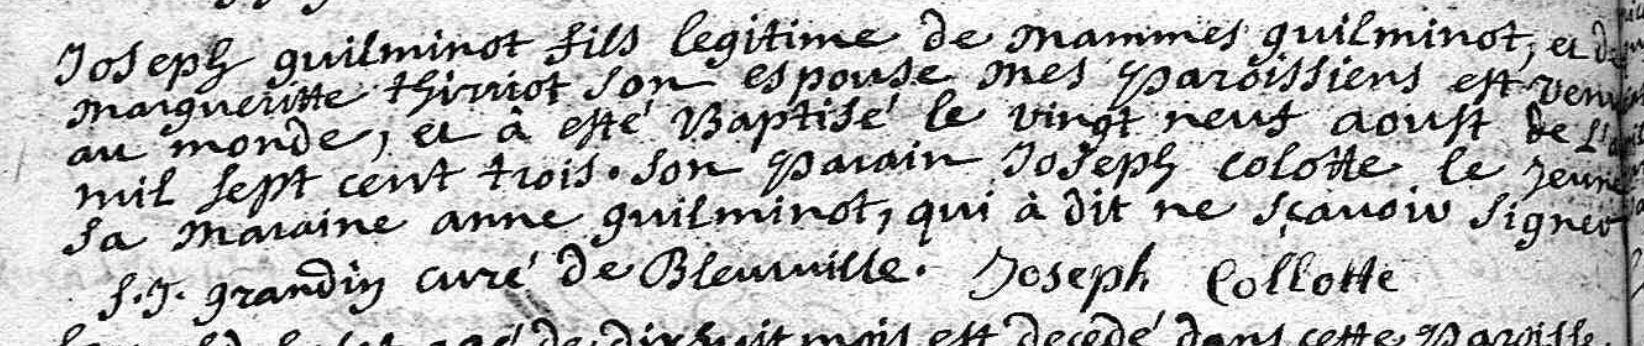 Joseph guilminot fils legitime de mammes guilminot, et de
margueritte thirriot son espouse mes paroissiens est venu
au monde, et à esté Baptisé le vingt neuf aoust de l'
mil sept cent trois. son parain Joseph colotte le jeune
sa maraine anne guilminot, qui à dit ne sçavoir signer
grandin curé de Bleurville. Joseph Collotte
agé de dix huit mois est decedé dans cette paroisse.